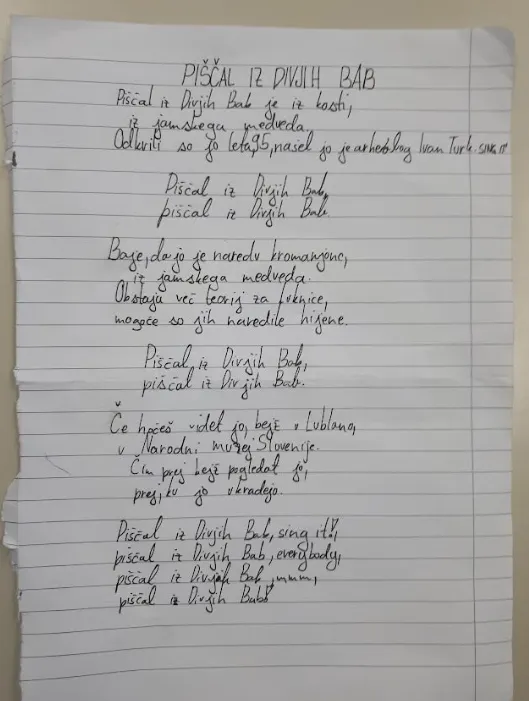 PIŠČAL IZ DIVJIH BAB
Piščal iz Divjih Bab je iz kosti,
iz jamskega medveda.
Odkrili so jo leta 95, našel jo je arheolog Ivan Turk. SING IT
Piščal iz Divjih Bab,
piščal iz Divjih Bab.
Baje, da jo je naredu kromanjonc,
iz jamskega medveda.
Obstaja več teorij za luknice,
mogoče so jih naredile hijene.
Piščal iz Divjih Bab,
piščal iz Divjih Bab.
Če hočeš videt jo, bejž v Lublano,
v Narodni muzej Slovenije.
Čim prej bejž pogledat jo,
prej, ku jo ukradejo.
Piščal iz Divjih Bab, sing it!,
piščal iz Divjih Bab, everybody,
piščal iz Divjih Bab, mmm,
piščal iz Divjih Bab!